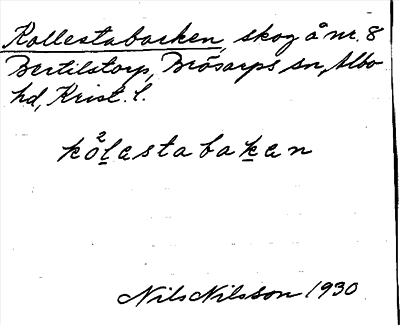 Kollestabacken, skog å nr. 8
Bertilstorp, Brösarps sn, Albo
hd, Krist. l.
kò²lastabakan
Nils Nilsson 1930